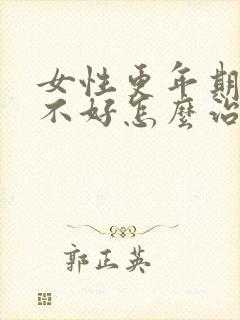 女性更年期
不好怎麼治
郭正英